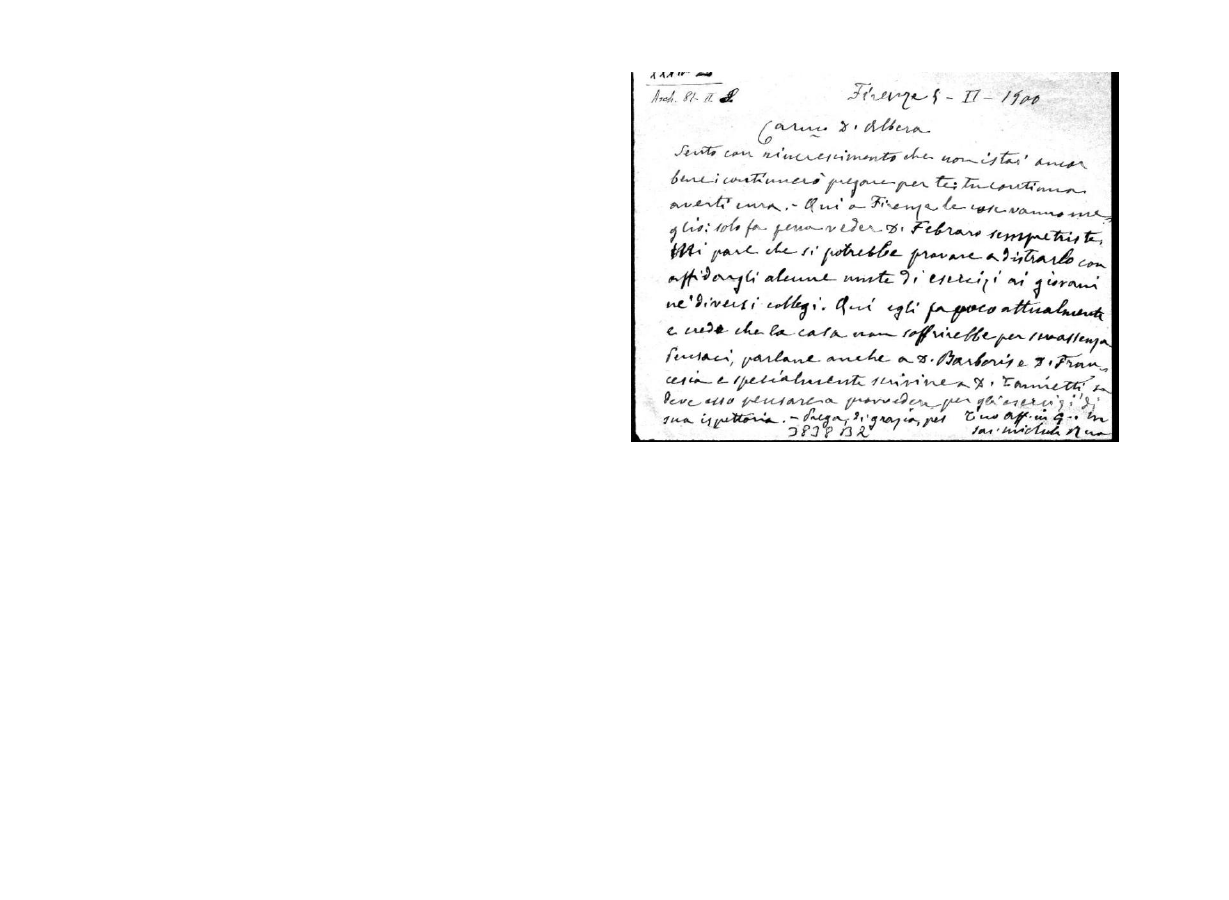 Arch. 82-II
Firenze 5 - II - 1900
Carmo D. Albera
Sento con rincrescimento che non istai ancor
bene: continuerò pregare per te: tu continua
averti cura. - Qui a Firenze le cose vanno me-
glio: solo fa pena veder D. Febraro sempre triste.
Mi pare che si potrebbe provare a distrarlo con
affidargli alcune mute di esercizi ai giovani
ne' diversi collegi. Qui egli fa poco attualmente
e credo che la casa non soffrirebbe per sua assenza
Pensaci, parlane anche a D. Barberis e D. Fran-
cesia e specialmente scrivine a D.
deve esso pensare a provvedere per gli esercizi di
sua ispettoria. - Prega, di grazia, pel Tuo aff. in G. e M.
3838 B2 Sac. Michele Rua